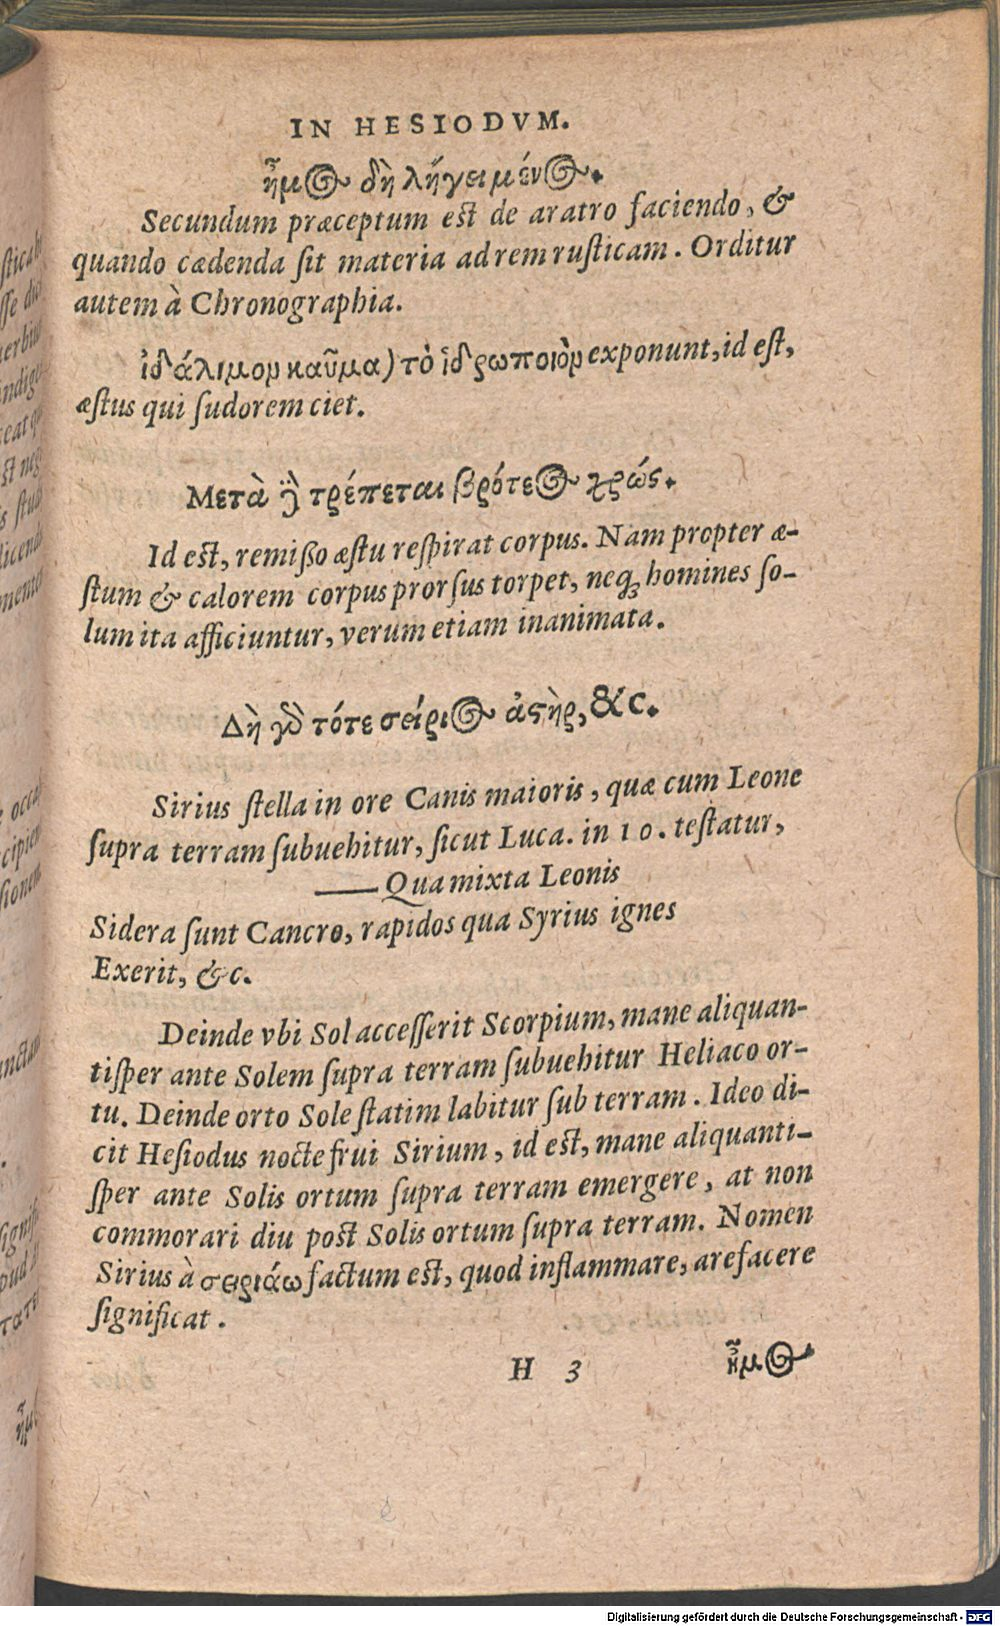 IN HESIODVM.
ἦμος δὴ λήγει μένος.
Secundum præceptum est de aratro faciendo, &
quando cædenda sit materia ad rem rusticam. Orditur
autem à Chronographia.
ἰδάλιμον καῦμα) τὸ ἱδρωποιὸν exponunt, id est,
æstus qui sudorem ciet.
Μετὰ δὲ τρέπεται βρότεος χρώς.
Id est, remisso æstu respirat corpus. Nam propter æ-
stum & calorem corpus prorsus torpet, neq; homines so-
lum ita afficiuntur, verum etiam inanimata.
Δὴ γὰρ τότε σείριος ἀστὴρ, &c.
Sirius stella in ore Canis maioris, quæ cum Leone
supra terram subuehitur, sicut Luca. in 10. testatur,
—— Qua mixta Leonis
Sidera sunt Cancro, rapidos qua Syrius ignes
Exerit, &c.
Deinde vbi Sol accesserit Scorpium, mane aliquan-
tisper ante Solem supra terram subuehitur Heliaco or-
tu. Deinde orto Sole statim labitur sub terram. Ideo di-
cit Hesiodus nocte frui Sirium, id est, mane aliquanti-
sper ante Solis ortum supra terram emergere, at non
commorari diu post Solis ortum supra terram. Nomen
Sirius à σειριάω factum est, quod inflammare, arefacere
significat.
H 3 ἦμος
Digitalisierung gefördert durch die Deutsche Forschungsgemeinschaft - DFG